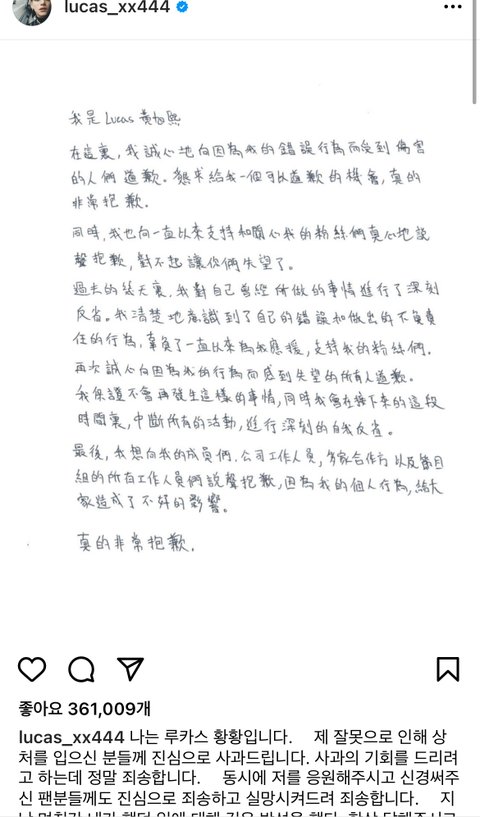 lucas_xx444
我是 Lucas 黃旭熙
在這裏，我誠心地向因為我的錯誤行為而受到傷害
的人們道歉。懇求給我一個可以道歉的機會，真的
非常抱歉.
同時，我也向一直以來支持和關心我的粉絲們真心地說
聲抱歉，對不起讓你們失望了。
過去的幾天裏，我對自己曾經所做的事情進行了深刻
反省。我清楚地意識到了自己的錯誤和做出的不負責
任的行為，辜負了一直以來為我應援，支持我的粉絲們.
再次誠心向因為我的行為而感到失望的所有人道歉。
我保證不會再發生這樣的事情，同時我會在接下來的這段
時間裏，中斷所有的活動，進行深刻的自我反省。
最後，我想向我的成員們，公司工作人員，多家合作方以及節目
組的所有工作人員們說聲抱歉，因為我的個人行為，給大
家造成了不好的影響。
真的非常抱歉.
좋아요 361,009개
lucas_xx444 나는 루카스 황황입니다. 제 잘못으로 인해 상
처를 입으신 분들께 진심으로 사과드립니다. 사과의 기회를 드리려
고 하는데 정말 죄송합니다. 동시에 저를 응원해주시고 신경써주
신 팬분들께도 진심으로 죄송하고 실망시켜드려 죄송합니다. 지